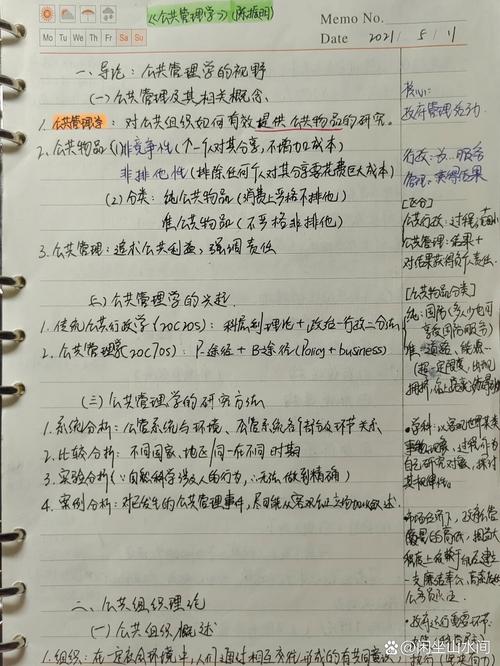 《公共管理学》(陈振明)
Memo No.
Mo Tu We Th Fr Sa Su
Date 2021 / 5 / 11
一、导论：公共管理学的视野
(一)公共管理及其相关概念.
1. 公共管理学：对公共组织如何有效提供公共物品的研究。
2. 公共物品 (1)非竞争性(个人对其分享,不增加成本)
非排他性(排除任何个人对其分享需花费巨大成本)
(2)分类：纯公共物品(消费上严格不排他)
准公共物品(不严格非排他)
3. 公共管理：追求公共利益，强调责任
(二)公共管理学的兴起.
1. 传统公共行政学(20C20S)：科层制理论+政治-行政二分法
2. 公共管理学(20C70S)：P-途径+B-途径(Policy+business)
(三)公共管理学的研究方法
1. 系统分析：公管系统与环境、公管系统各个部分及环节关系
2. 比较分析：不同国家、地区/同一不同时期
3. 实验分析(∵自然科学涉人的行为,∴无法做到精确)
4. 案例分析：对已发生的公共管理事件,尽可能从客观公正立场加以叙述.
二、公共组织理论
(一)公共组织概述
1. 组织：在一定社会环境中,人们通过相互交往形成的有共同意识
核心：
政府管理活动
行政：服务
管理：实得结果
[区分]
公共行政：过程,范围小
公共管理：结果+
对结果获得负个人责任.
[公共物品分类]
纯：国防
享受国防服务)
准：道路、
超一定限度,出现
拥挤,
·学科：以客观世界某类
事物、现象、过程作为
自己研究对象,探讨
其规律性.
的高低,
@闲坐山水间